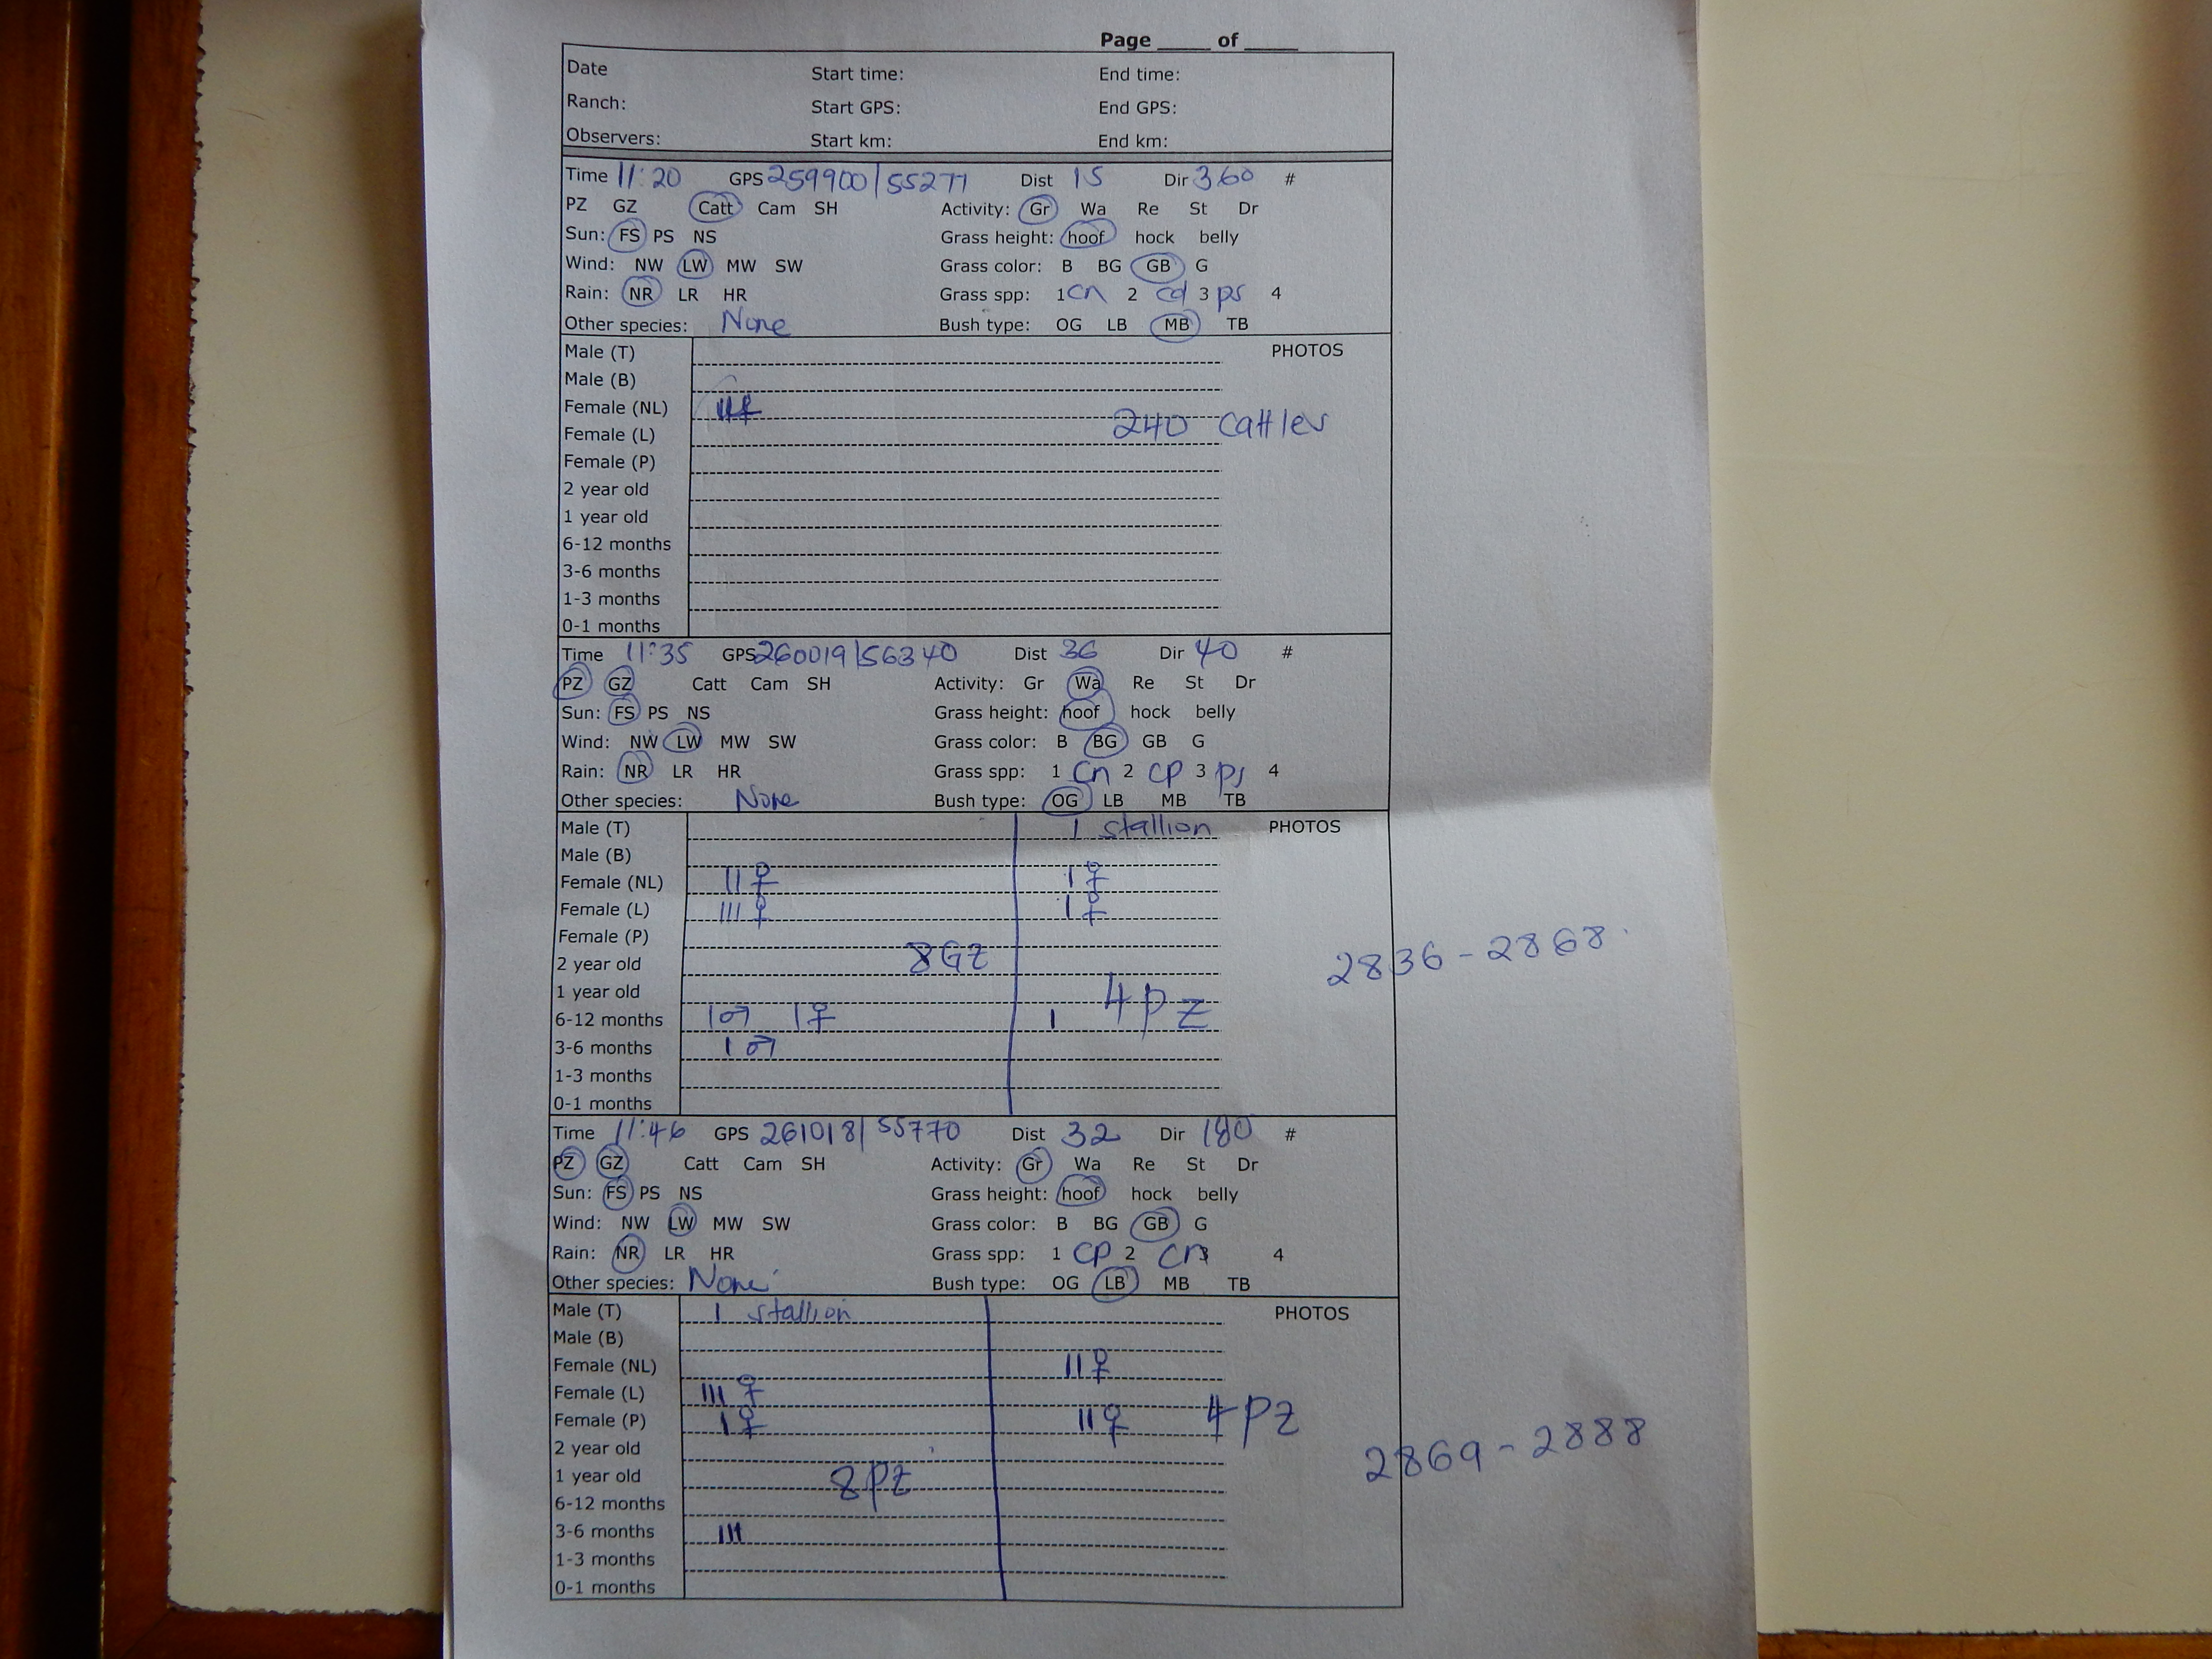 Page _____ of _____
Date Start time: End time:
Ranch: Start GPS: End GPS:
Observers: Start km: End km:
Time 11:20 GPS 259900/55271 Dist 15 Dir 360 #
PZ GZ Catt Cam SH Activity: Gr Wa Re St Dr
Sun: FS PS NS Grass height: hoof hock belly
Wind: NW LW MW SW Grass color: B BG GB G
Rain: NR LR HR Grass spp: 1 cn 2 cd 3 ps 4
Other species: None Bush type: OG LB MB TB
Male (T) PHOTOS
Male (B)
Female (NL)
Female (L) 240 cattles
Female (P)
2 year old
1 year old
6-12 months
3-6 months
1-3 months
0-1 months
Time 11:35 GPS 260019/56340 Dist 36 Dir 40 #
PZ GZ Catt Cam SH Activity: Gr Wa Re St Dr
Sun: FS PS NS Grass height: hoof hock belly
Wind: NW LW MW SW Grass color: B BG GB G
Rain: NR LR HR Grass spp: 1 cn 2 cp 3 ps 4
Other species: None Bush type: OG LB MB TB
Male (T) 1 stallion PHOTOS
Male (B)
Female (NL) II♀ I♀
Female (L) III♀ I♀
Female (P)
2 year old 8GZ 2836-2868
1 year old
6-12 months I♂ I♀ I 4PZ
3-6 months I♂
1-3 months
0-1 months
Time 11:46 GPS 261018/55770 Dist 32 Dir 180 #
PZ GZ Catt Cam SH Activity: Gr Wa Re St Dr
Sun: FS PS NS Grass height: hoof hock belly
Wind: NW LW MW SW Grass color: B BG GB G
Rain: NR LR HR Grass spp: 1 cp 2 cn 3 4
Other species: None Bush type: OG LB MB TB
Male (T) 1 stallion PHOTOS
Male (B)
Female (NL) II♀
Female (L) III♀
Female (P) I♀ II♀ 4PZ
2 year old 2869-2888
1 year old 8PZ
6-12 months
3-6 months III
1-3 months
0-1 months